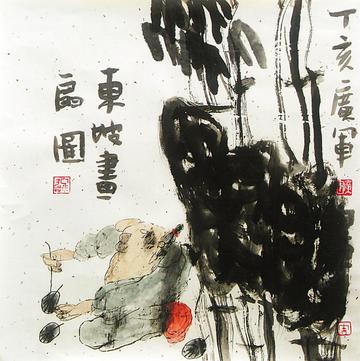 丁亥廣軍
東坡畫
扇圖